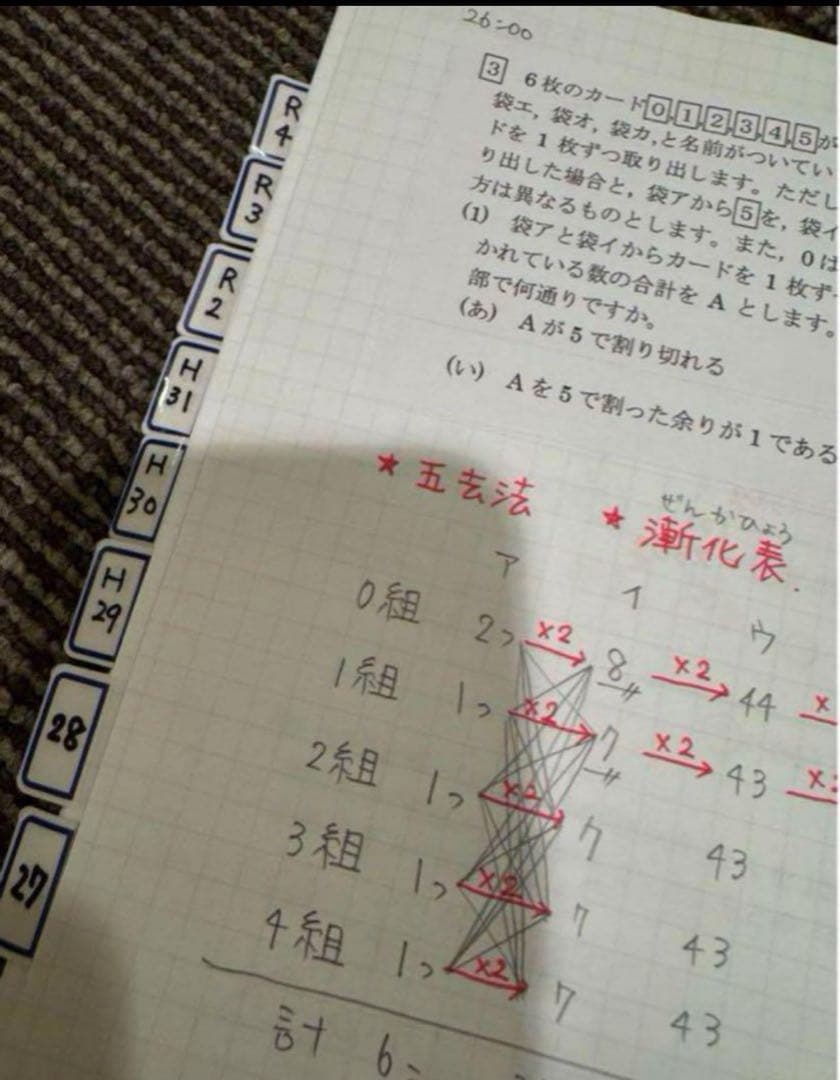 26:00
3 6枚のカード0,1,2,3,4,5が
袋エ,袋オ,袋カ,と名前がついてい
ドを1枚ずつ取り出します。ただし
り出した場合と,袋アから5を,袋イ
方は異なるものとします。また,0は
(1) 袋アと袋イからカードを1枚ず
かれている数の合計をAとします。
部で何通りですか。
(あ) Aが5で割り切れる
(い) Aを5で割った余りが1である
R4
R3
R2
H31
H30
H29
28
27
★五去法
ぜんかひょう
★漸化表.
ア イ ウ
0組 2つ ×2 8 ×2 44 ×
1組 1つ ×2 7 ×2 43 ×2
2組 1つ ×2 7 43
3組 1つ ×2 7 43
4組 1つ ×2 7 43
計 6